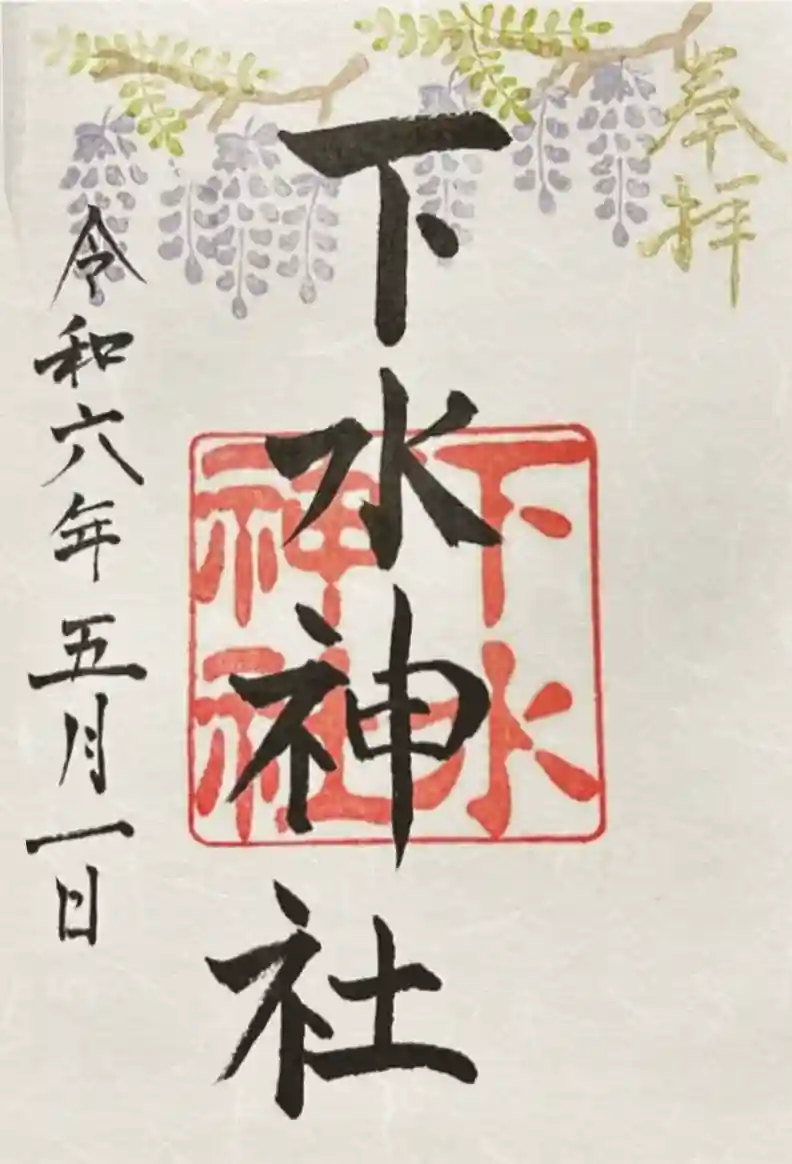 奉拝
下水神社
下水
神社
令和六年五月一日